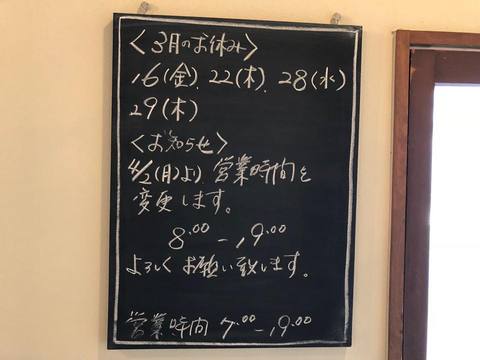 〈3月のお休み〉
16(金)、22(木)、28(水)
29(木)
〈お知らせ〉
4/2(月)より 営業時間を
変更します。
8:00-19:00
よろしくお願い致します。
営業時間 7:00-19:00